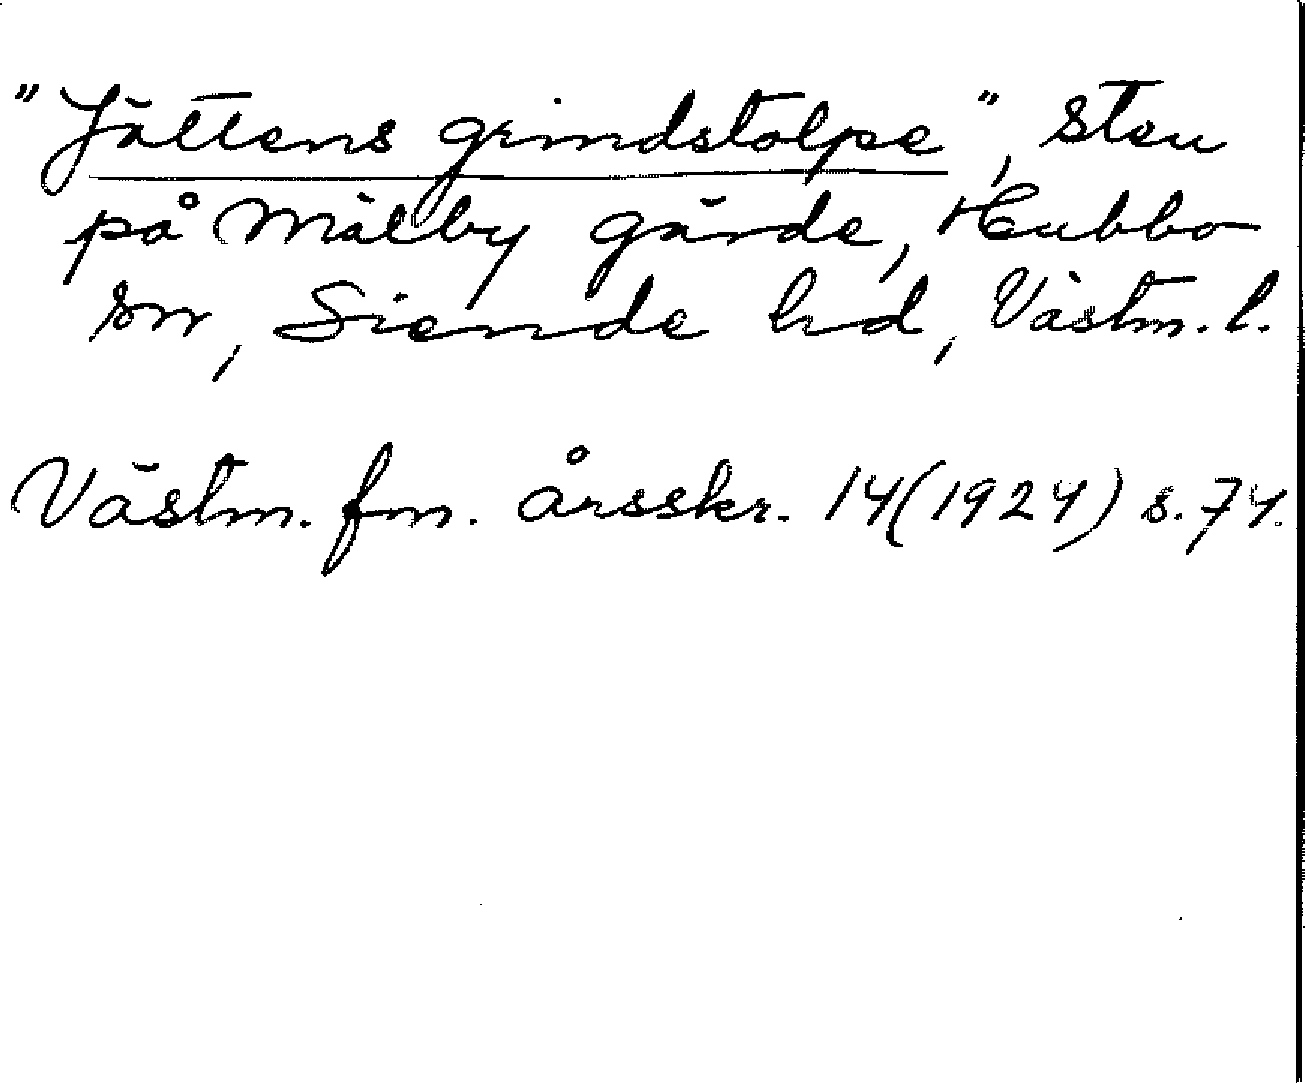 "Jättens grindstolpe", sten
på Mälby gärde, Hubbo
sn, Siende hd, Västm. l.
Västm. fm. årsskr. 14 (1924) s. 74.